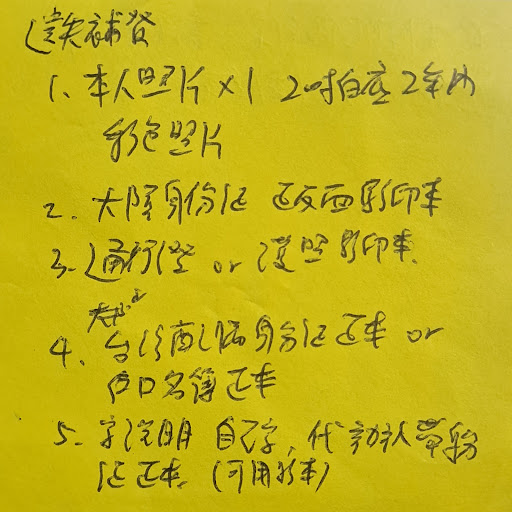 遺失補發
1. 本人照片 x1 2吋白底2年內
彩色照片
2. 大陸身份证 正反面影印本
3. 通行證 or 護照影印本
4. 台灣配偶身份证正本 or
戶口名簿正本
5. 說明 自己字, 代
证正本 (可用影本)